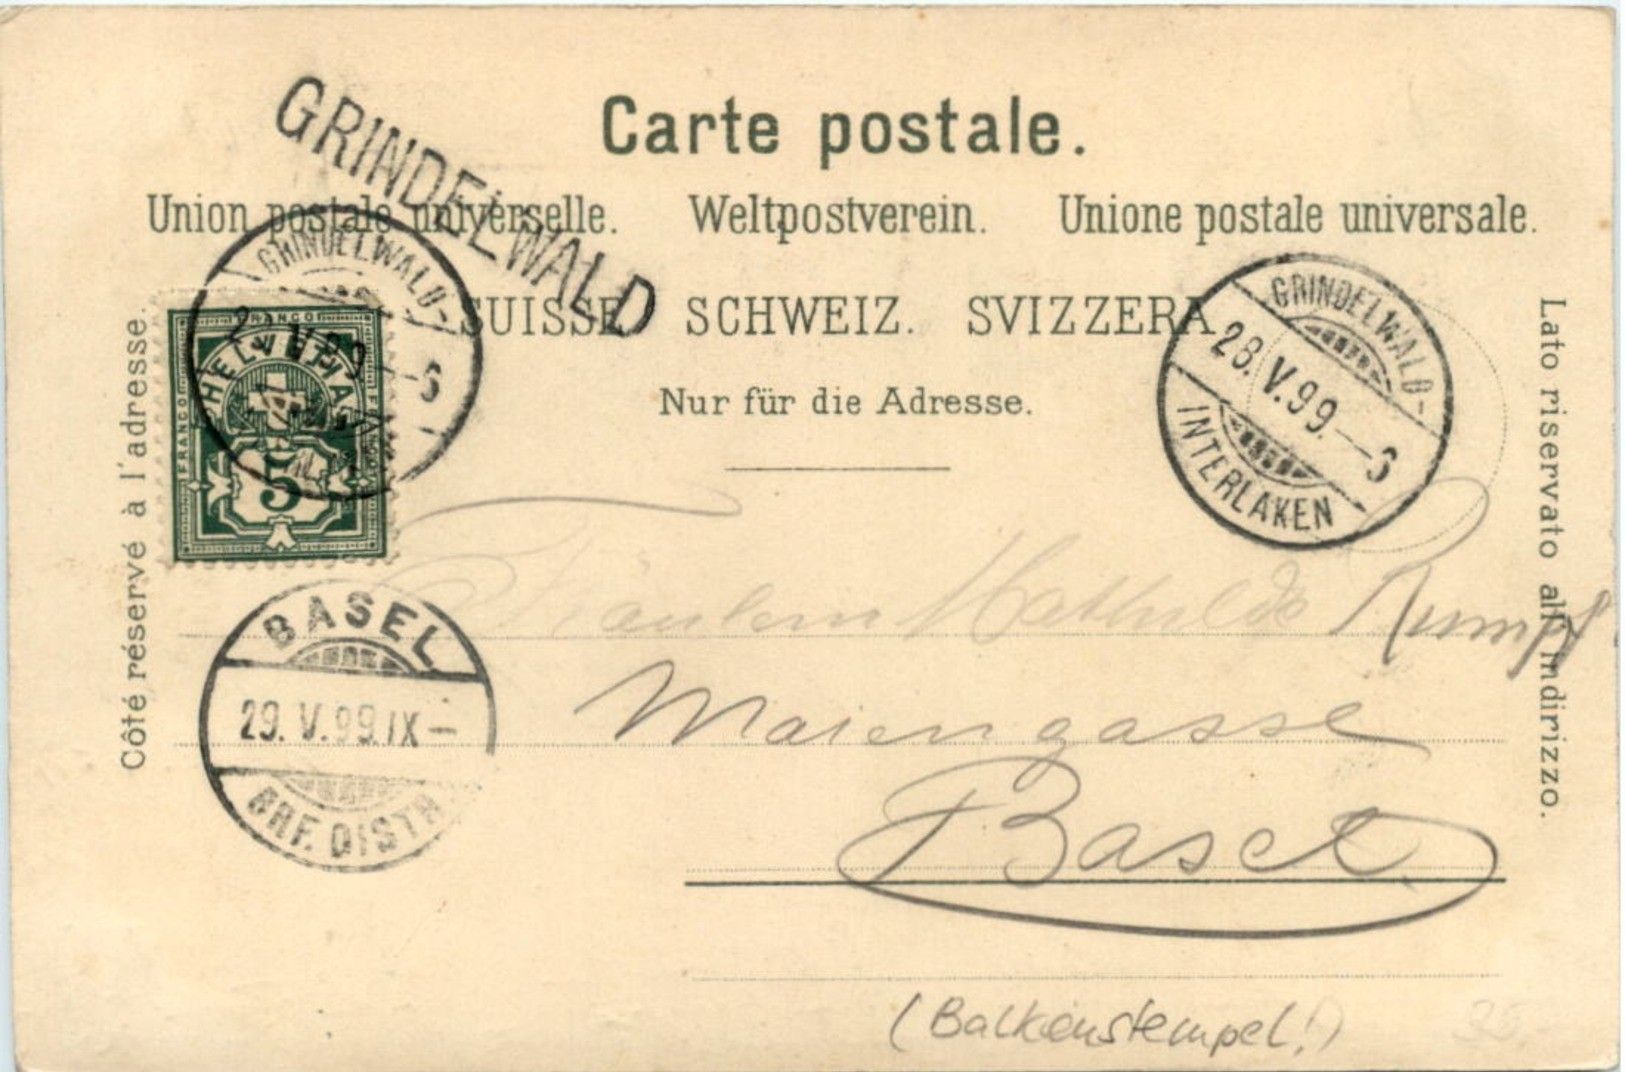 GRINDELWALD
Carte postale.
Union postale universelle. Weltpostverein. Unione postale universale.
SUISSE SCHWEIZ. SVIZZERA
Nur für die Adresse.
Côté réservé à l'adresse.
Lato riservato all' indirizzo.
GRINDELWALD-
V.99.-6
FRANCO
HELVETIA
FRANCO
5
GRINDELWALD-
28.V.99.-6
INTERLAKEN
BASEL
29.V.99.IX-
BRF. DISTR
Fräulein Mathilde Rumpf
Maiengasse
Basel
(Balkenstempel!)
35.